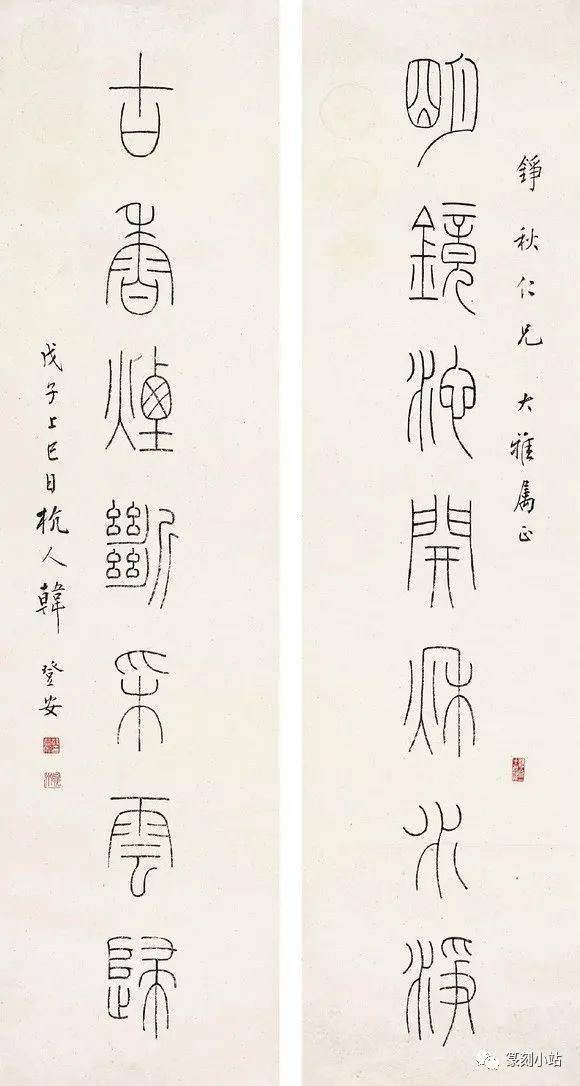 錚秋仁兄大雅属正
明鏡池開秋水淨
古香煙斷采雲歸
戊子上巳日杭人韓登安
篆刻小站